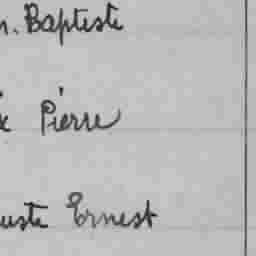 n. Baptiste
x Pierre
uste Ernest